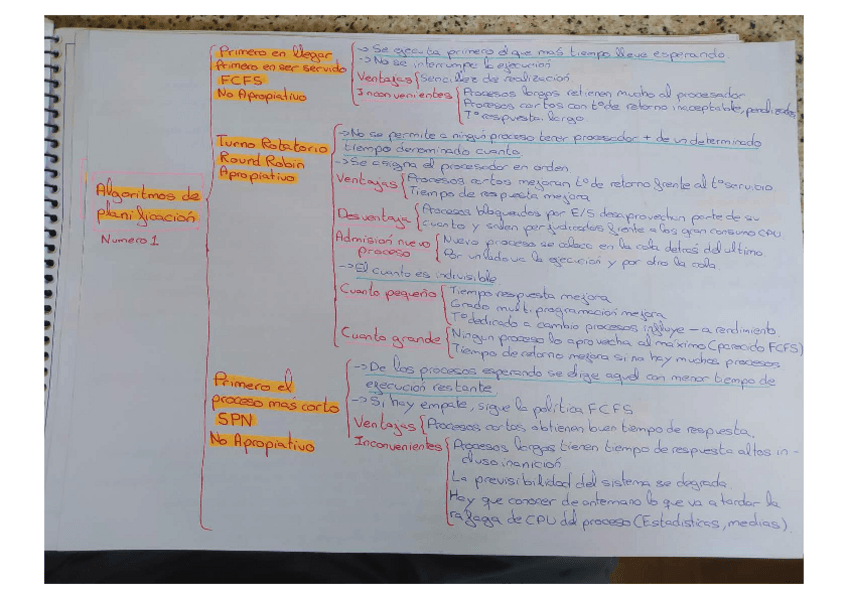 Algoritmos de
planificación
Numero 1
Primero en llegar
Primero en ser servido
FCFS
No Apropiativo
-> Se ejecuta primero el que mas tiempo lleva esperando
-> No se interrumpe la ejecución
Ventajas { Sencillez de realización
Inconvenientes { Procesos largos retienen mucho al procesador
Procesos cortos con tº de retorno inaceptable, penalizados
Tº respuesta largo
Turno Rotatorio
Round Robin
Apropiativo
-> No se permite a ningún proceso tener procesador + de un determinado
tiempo denominado cuanto
-> Se asigna al procesador en orden
Ventajas { Procesos cortos mejoran tº de retorno frente al tº servicio
Tiempo de respuesta mejora
Desventaja { Procesos bloqueados por E/S desaprovechan parte de su
cuanto y salen perjudicados frente a los gran consumo CPU
Admisión nuevo
proceso
{ Nuevo proceso se coloca en la cola detras del ultimo
Por un lado va la ejecución y por otro la cola
-> El cuanto es indivisible
Cuanto pequeño { Tiempo respuesta mejora
Grado multiprogramacion mejora
Tº dedicado a cambio procesos influye - a rendimiento
Cuanto grande { Ningun proceso lo aprovecha al máximo (parecido FCFS)
Tiempo de retorno mejora si no hay muchos procesos
Primero el
proceso mas corto
SPN
No Apropiativo
-> De los procesos esperando se elige aquel con menor tiempo de
ejecución restante
-> Si hay empate, sigue la política FCFS
Ventajas { Procesos cortos obtienen buen tiempo de respuesta.
Inconvenientes { Procesos largos tienen tiempo de respuesta altos in-
cluso inanición
La previsibilidad del sistema se degrada
Hay que conocer de antemano lo que va a tardar la
rafaga de CPU del proceso (Estadisticas, medias).